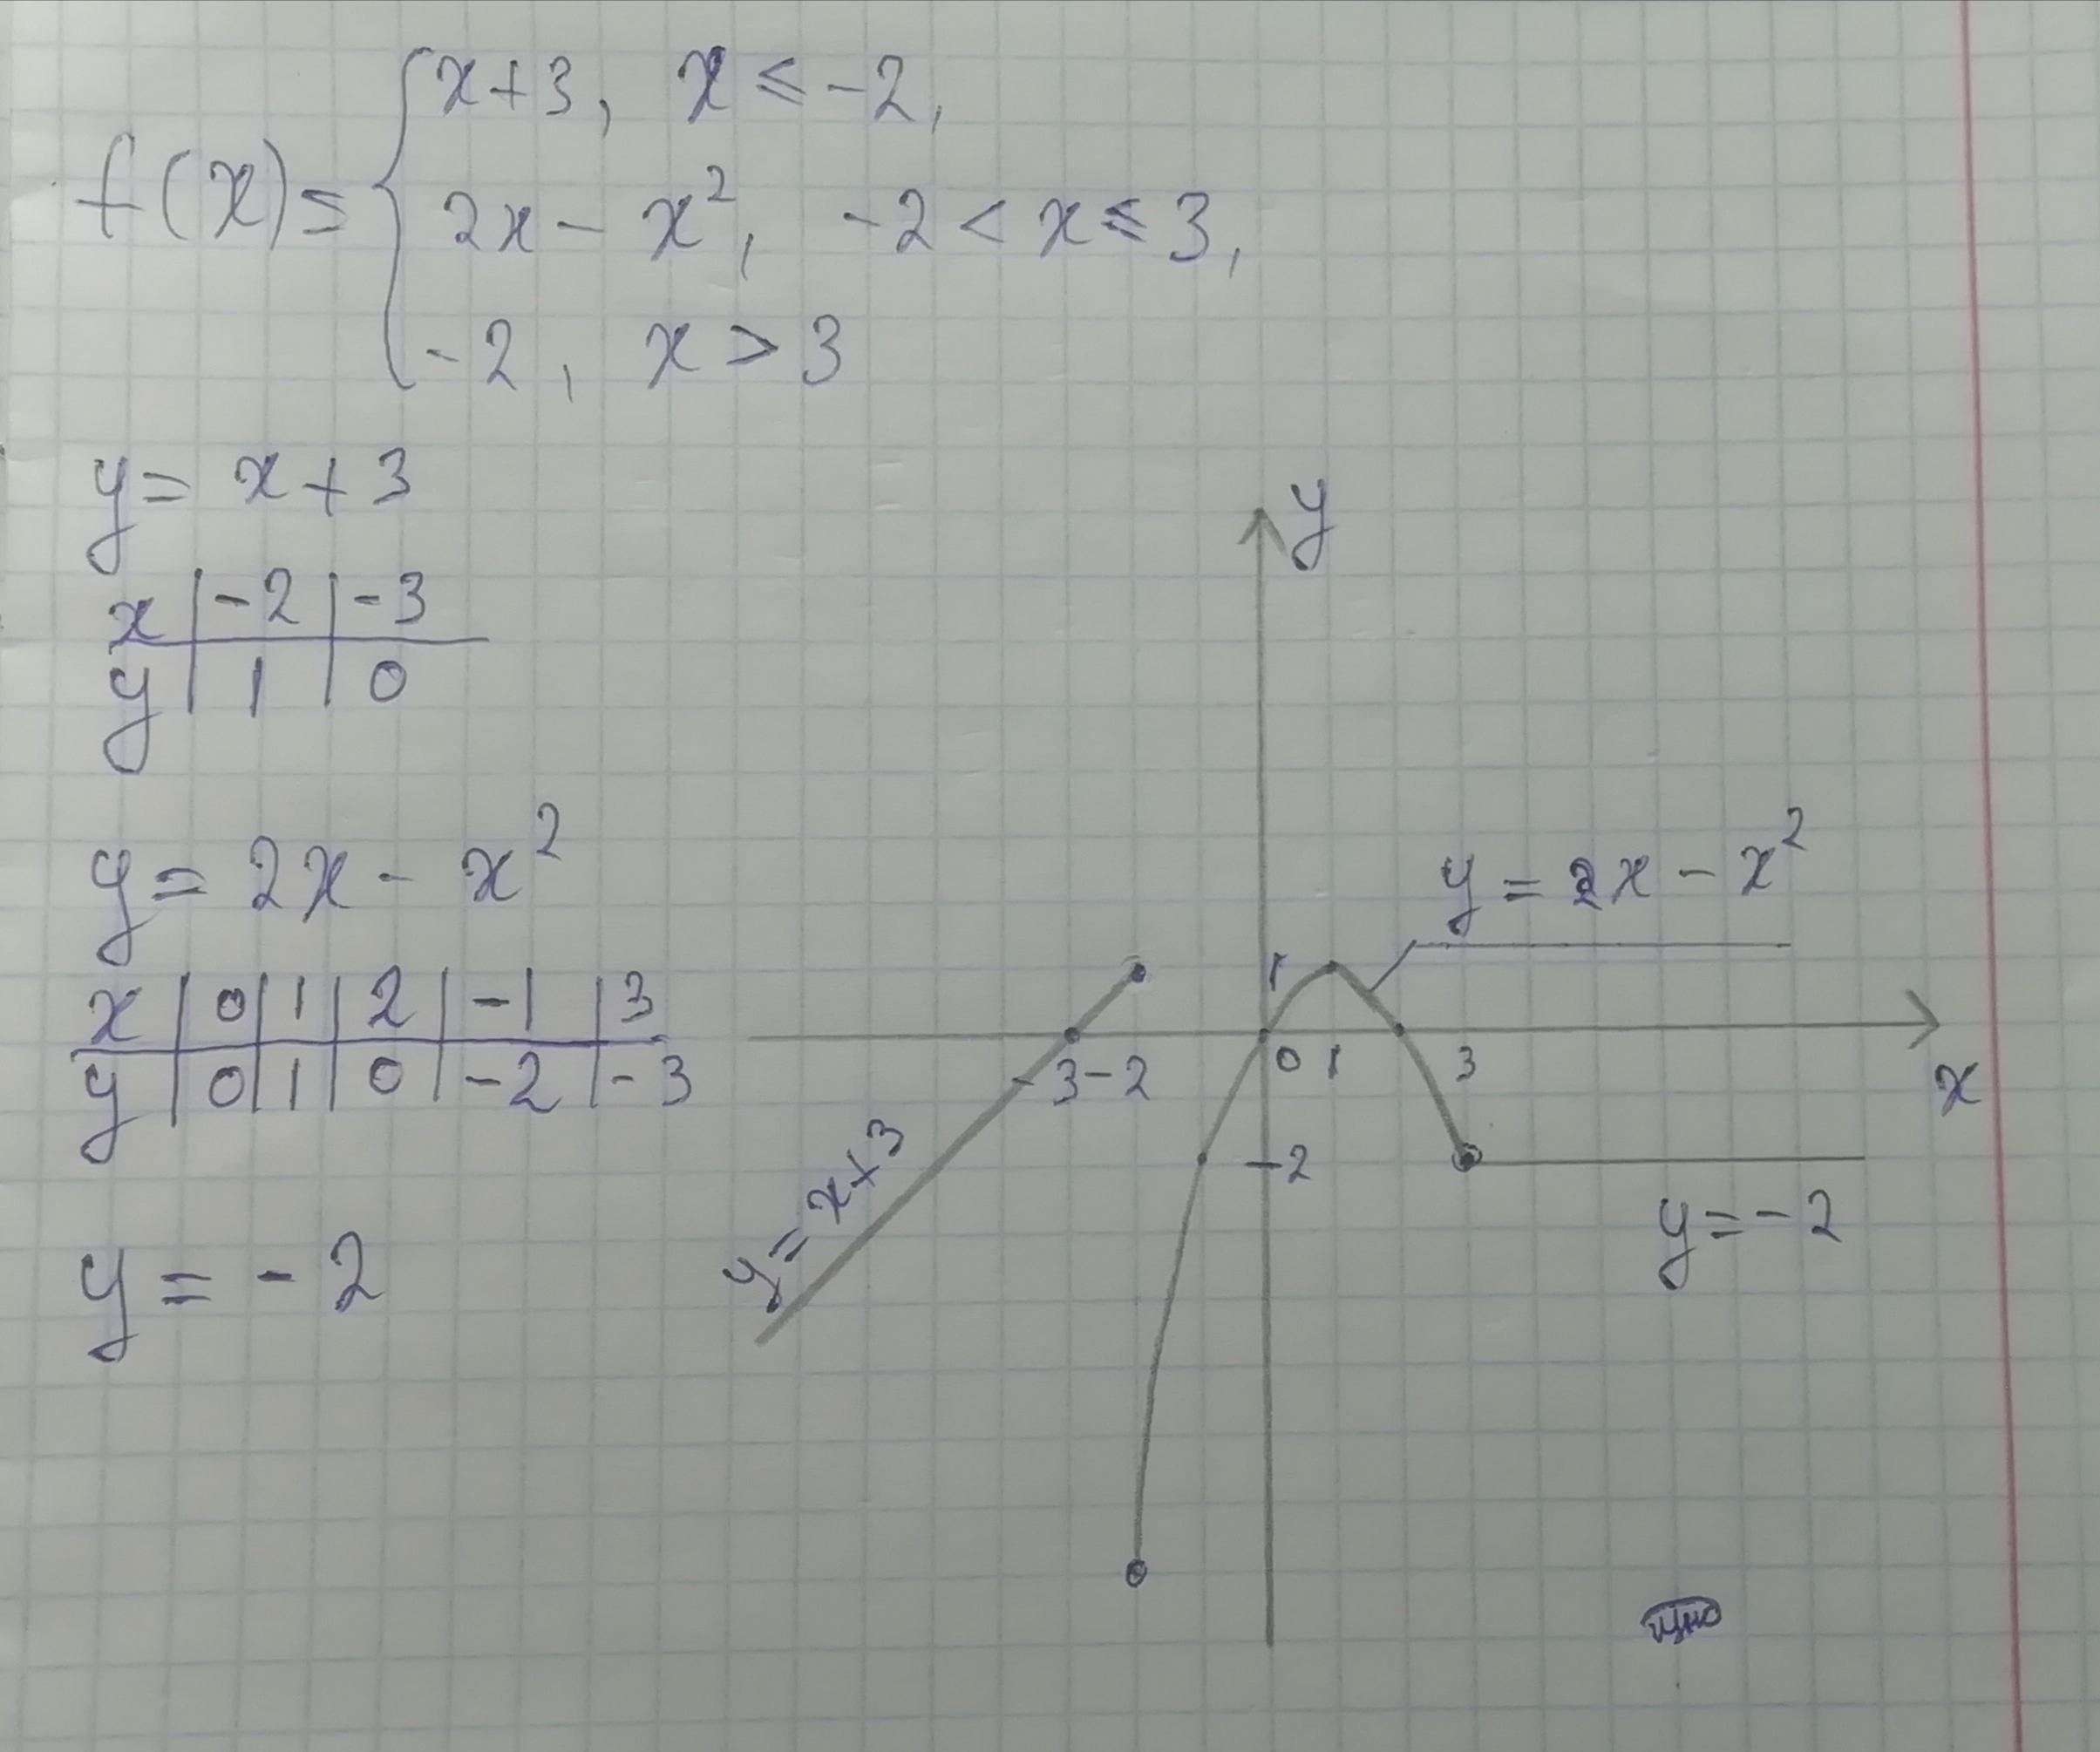 f(x) = { x+3, x ≤ -2,
2x - x², -2 < x ≤ 3,
-2, x > 3
y = x + 3
x | -2 | -3
y | 1 | 0
y = 2x - x²
x | 0 | 1 | 2 | -1 | 3
y | 0 | 1 | 0 | -2 | -3
y = -2
y
y = 2x - x²
1
-3 -2 0 1 3
x
y = x+3
-2
y = -2